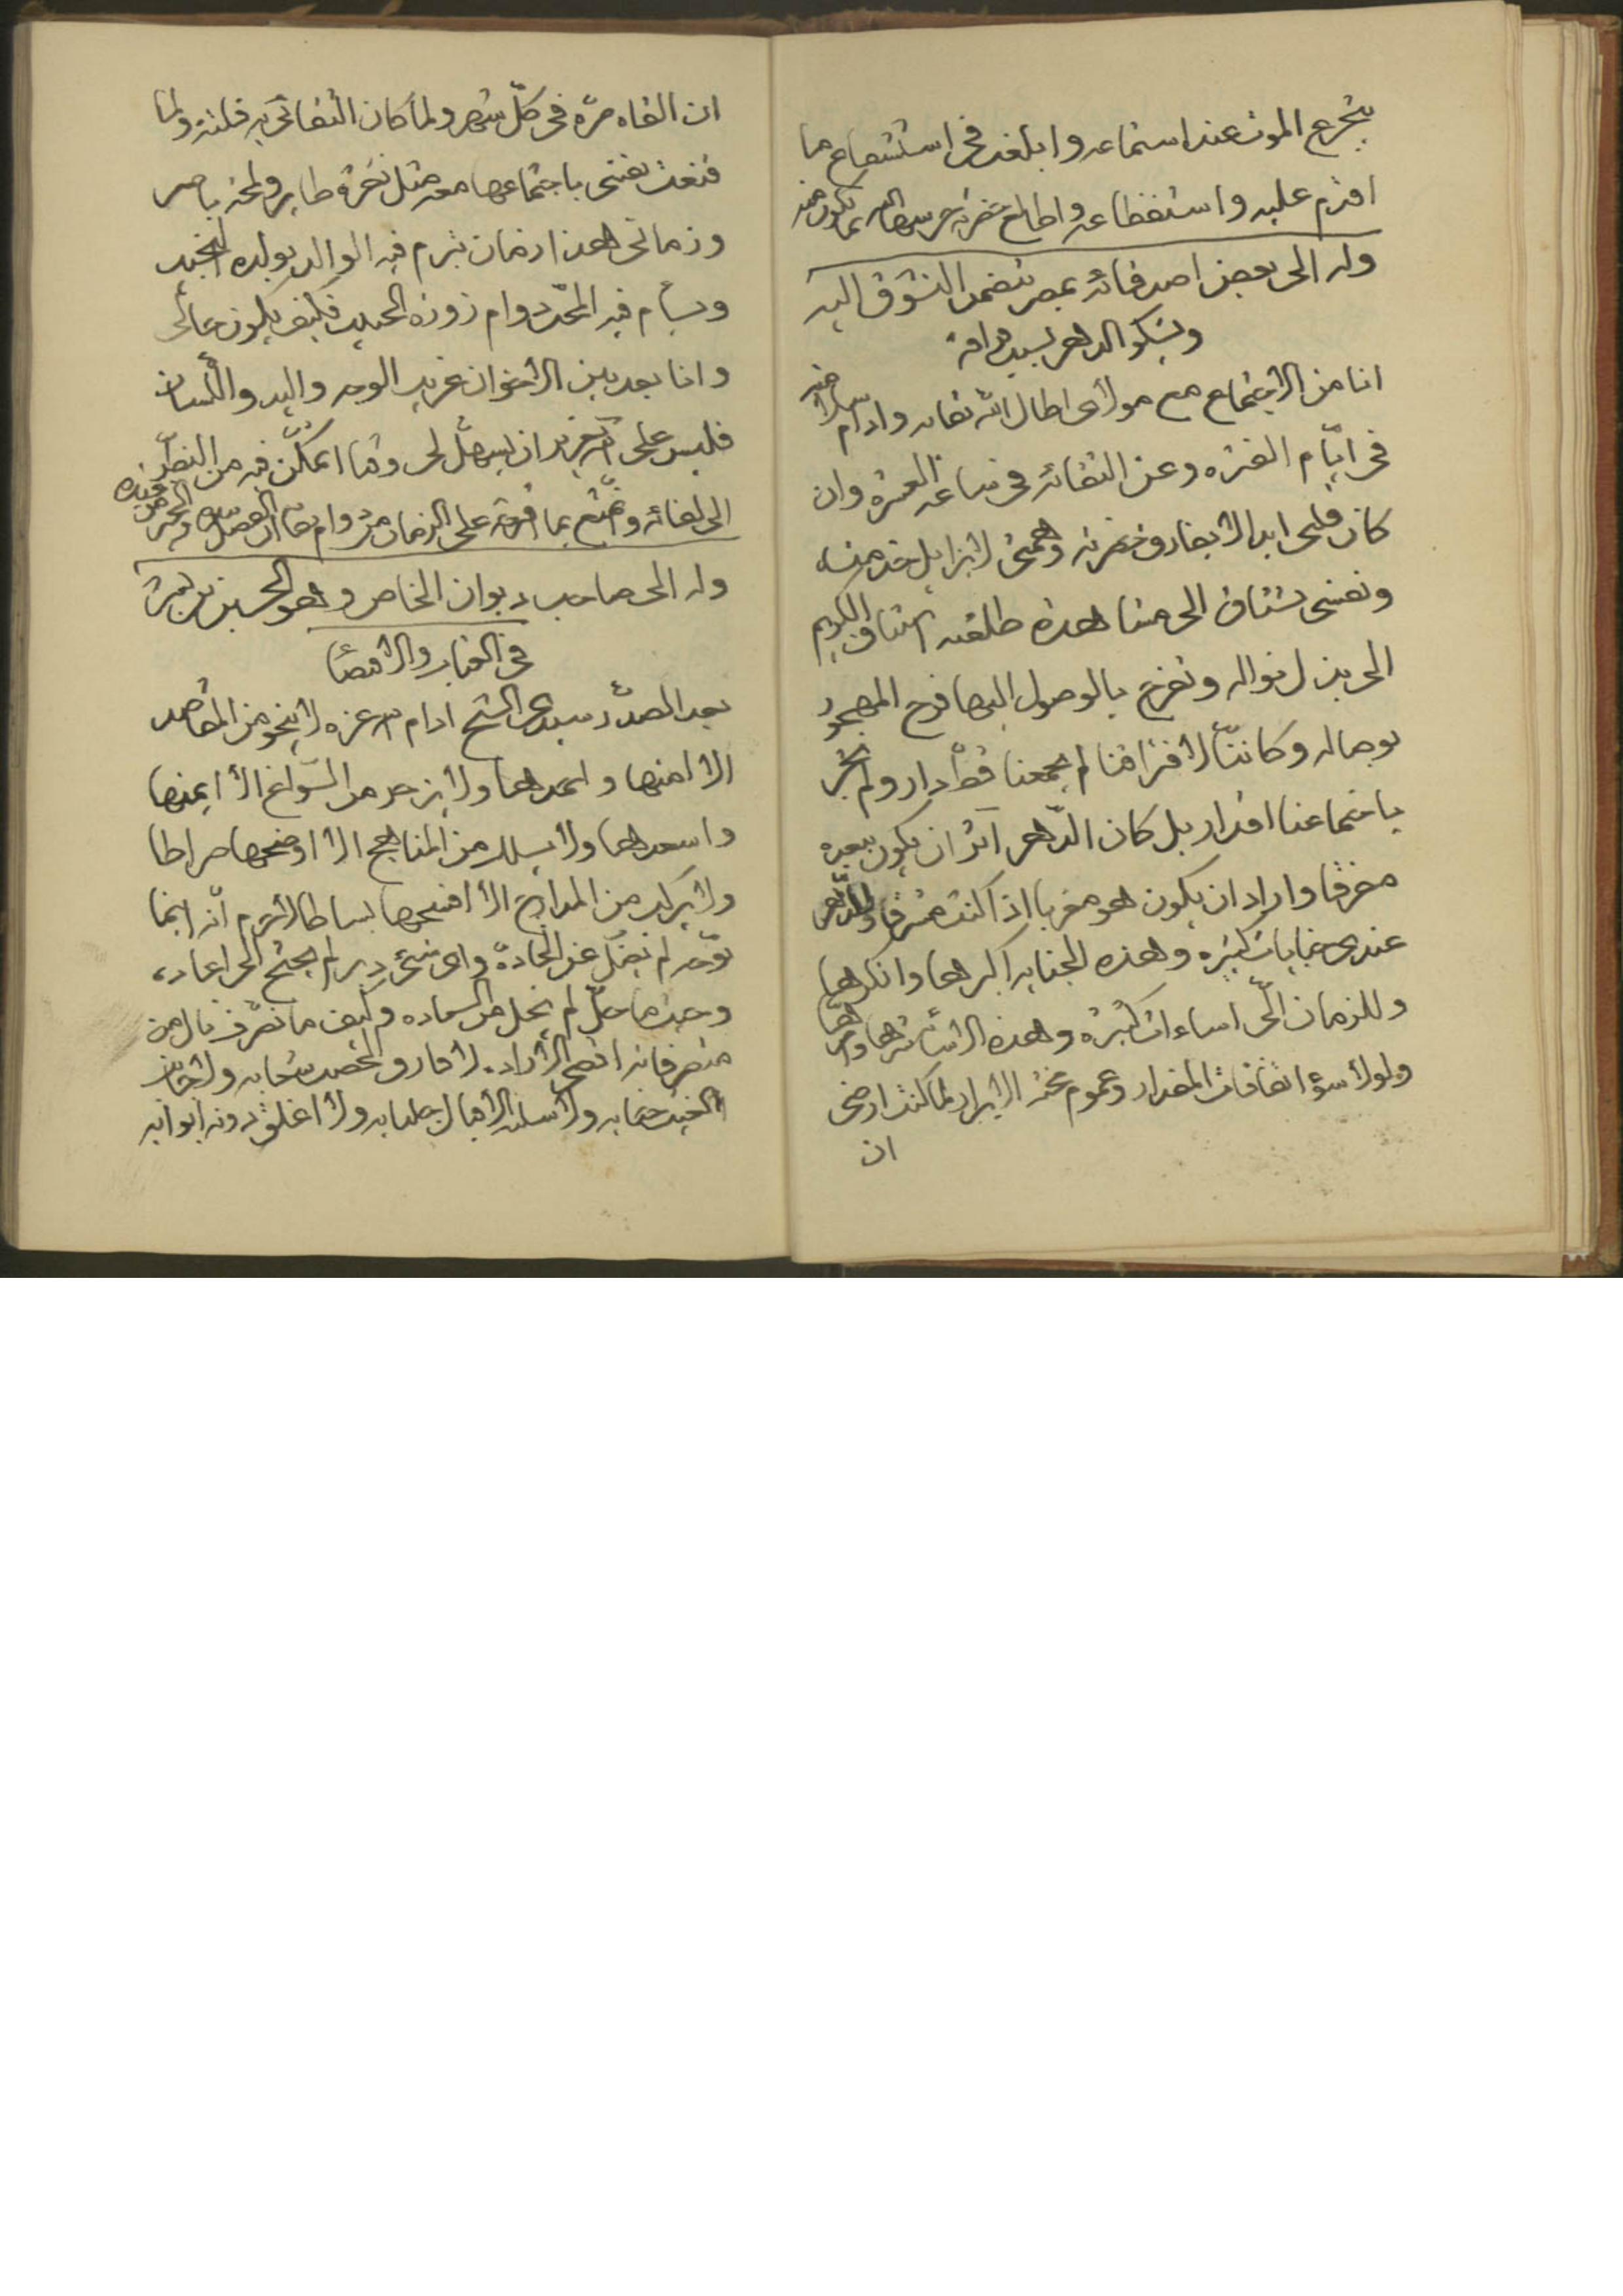 يتجرع الموت عند استماعه وابلغه فى استشعاع ما
اقدم عليه واستفظاعه واطالع حضرته حرسها الله بما يكون منه
وله الى بعض اصدقائه بمصر يتضمن التشوق اليه
ويشكو الدهر بسبب فراقه
انا من الاجتماع مع مولاى اطال الله بقاءه وادام
فى ايّام الفتره وعن التقائه فى ساعه العسره وان
كان قلبى ابدا لا يفارق حضرته وهمتى لا تزايل خدمته
ونفسى تشتاق الى مشاهدة طلعته اشتياق الكريم
الى بذل نواله وتفرح بالوصول اليها فرح المهجور
بوصاله وكاننا لافتراقنا لم يجمعنا قط دار ولم تجر
باجتماعنا اقدار بل كان الدّهر آثر ان يكون ببعده
مفرقا واراد ان يكون هو مغربا اذا كنت مشرقا وللدهر
عندى جنايات كبيره وهذه الجنايه اكبرها وانكرها
وللزمان الىّ اساءات كثيرة وهذه الاساءة
ولولا سوء اتفاقات المقدار وعموم محنة الابرار لما كنت ارضى
ان
ان القاه مرّه فى كلّ شهر ولما كان التقائى به فلتة ولما
قنعت نفسى باجتماعها معه مثل نقرة طاير ولمحة باصر
وزمانى هذا زمان تبرم فيه الوالد بولده النجيب
ويسأم فيه المحبّ دوام زورة الحبيب فكيف يكون حالى
وانا بعد بين الاخوان غريب الوجه واليد واللّسان
فليس على كريم ان يسهّل لى وقتا اتمكّن فيه من النظر
الى لقائه واتمتّع بما اقترحه على الزمان من دوام بقائه
وله الى صاحب ديوان الخاص وهو الحسين بن بشر
فى العتاب والاقتضاء
بعد الصدّر سيدى الشيخ ادام الله عزه لا ينحو من المقاصد
الا امنها واحمدها ولا يزجر من السّوانح الا ايمنها
واسعدها ولا يسلك من المناهج الا اوضحها صراطا
ولا يركب من المدارج الا افسحها بساطا لا جرم انّه اينما
توجّه لم يضلّ عن الجادة واى شىء دبر لم يحتج الى اعاده
وحيث ما حلّ لم يخل من السعاده وكيف ما تصرّف نال من
متصرفاته اقصى الاراده لا فارق الخصب شعابه ولا جانب
الغيث جنابه ولا سلبه الاقبال جلبابه ولا اغلق دونه ابوابه